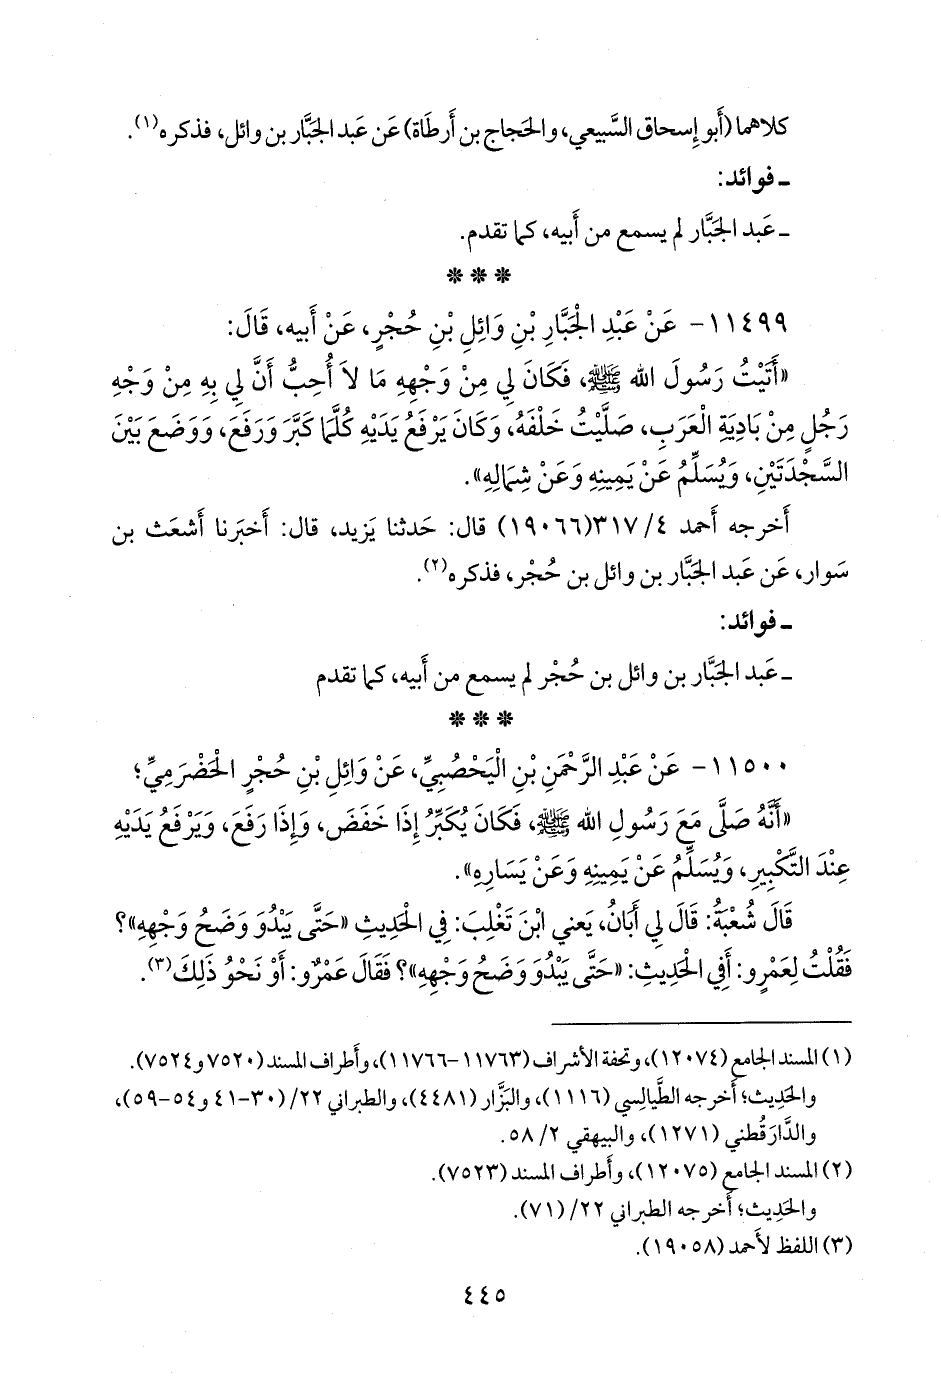 كلاهما (أَبو إِسحاق السَّبيعي، والحَجاج بن أَرطَاة) عَن عَبد الجَبَّار بن وائل، فذكره(١).
ـ فوائد:
ـ عَبد الجَبَّار لم يسمع من أَبيه، كما تقدم.
***
١١٤٩٩- عَنْ عَبْدِ الْجَبَّارِ بْنِ وَائِلِ بْنِ حُجْرٍ، عَنْ أَبيه، قَالَ:
«أَتَيْتُ رَسُولَ الله ﷺ، فَكَانَ لِي مِنْ وَجْهِهِ مَا لاَ أُحِبُّ أَنَّ لِي بِهِ مِنْ وَجْهِ
رَجُلٍ مِنْ بَادِيَةِ الْعَرَبِ، صَلَّيْتُ خَلْفَهُ، وَكَانَ يَرْفَعُ يَدَيْهِ كُلَّمَا كَبَّرَ وَرَفَعَ، وَوَضَعَ بَيْنَ
السَّجْدَتَيْنِ، وَيُسَلِّمُ عَنْ يَمِينِهِ وَعَنْ شِمَالِهِ».
أَخرجه أَحمد ٤/ ٣١٧(١٩٠٦٦) قال: حَدثنا يَزيد، قال: أَخبَرنا أَشعَث بن
سَوار، عَن عَبد الجَبَّار بن وائل بن حُجْر، فذكره(٢).
ـ فوائد:
ـ عَبد الجَبَّار بن وائل بن حُجْر لم يسمع من أَبيه، كما تقدم
***
١١٥٠٠- عَنْ عَبْدِ الرَّحْمَنِ بْنِ الْيَحْصُبِيِّ، عَنْ وَائِلِ بْنِ حُجْرٍ الْحَضْرَمِيِّ؛
«أَنَّهُ صَلَّى مَعَ رَسُولِ الله ﷺ، فَكَانَ يُكَبِّرُ إِذَا خَفَضَ، وَإِذَا رَفَعَ، وَيَرْفَعُ يَدَيْهِ
عِنْدَ التَّكْبِيرِ، وَيُسَلِّمُ عَنْ يَمِينِهِ وَعَنْ يَسَارِهِ».
قَالَ شُعْبَةُ: قَالَ لِي أَبَانُ، يَعني ابْنَ تَغْلِبَ: فِي الْحَدِيثِ «حَتَّى يَبْدُوَ وَضَحُ وَجْهِهِ»؟
فَقُلْتُ لِعَمْرٍو: أَفِي الْحَدِيثِ: «حَتَّى يَبْدُوَ وَضَحُ وَجْهِهِ»؟ فَقَالَ عَمْرٌو: أَوْ نَحْوُ ذَلِكَ(٣).
(١) المسند الجامع (١٢٠٧٤)، وتحفة الأشراف (١١٧٦٣-١١٧٦٦)، وأَطراف المسند (٧٥٢٠ و٧٥٢٤).
والحَدِيث؛ أَخرجه الطَّيالِسي (١١١٦)، والبَزَّار (٤٤٨١)، والطبراني ٢٢/ (٣٠-٤١ و٥٤-٥٩)،
والدَّارَقُطني (١٢٧١)، والبيهقي ٢/ ٥٨.
(٢) المسند الجامع (١٢٠٧٥)، وأَطراف المسند (٧٥٢٣).
والحَدِيث؛ أَخرجه الطبراني ٢٢/ (٧١).
(٣) اللفظ لأَحمد (١٩٠٥٨).
٤٤٥